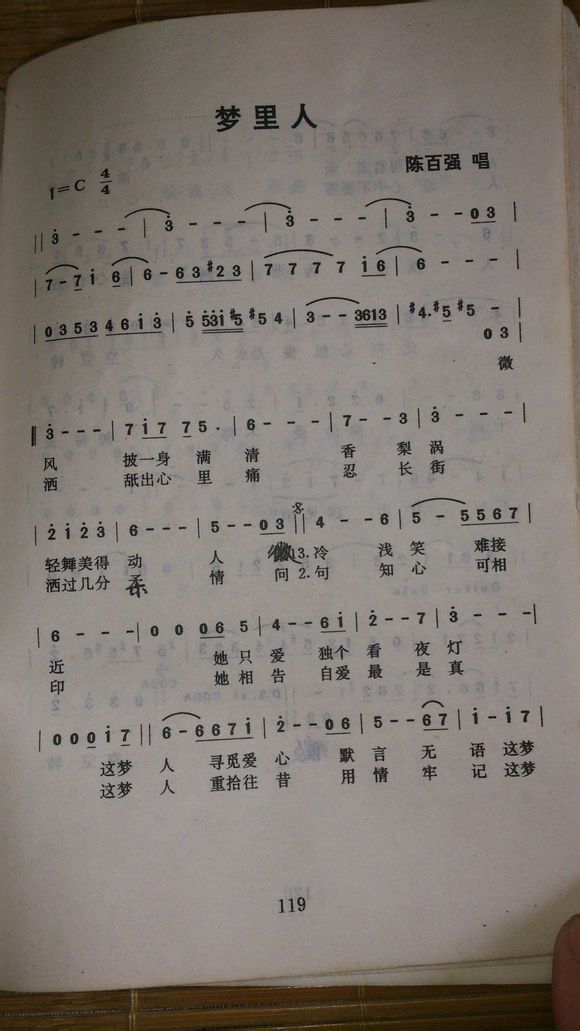 梦里人
陈百强 唱
1=C 4/4
‖ 3̇ - - - | 3̇ - - - | 3̇ - - - | 3̇ - - - | 3̇ - - 0 3 |
7 - 7 i̇ 6 | 6 - 6 3 #2 3 | 7 7 7 7 i̇ 6 | 6 - - - |
0 3 5 3 4 6 i̇ 3̇ | 5̇ 5̇3̇i̇#5 #5 4 | 3 - - 3613 | #4. #5 #5 -
0 3 |
微
3̇ - - - | 7 i̇ 7 7 5. | 6 - - - | 7 - - 3 | 3̇ - - - |
风 披一身 满 清 香 梨 涡
洒 舐出心 里 痛 忍 长 街
2̇ i̇ 2̇ 3̇ | 6 - - - | 5 - - 0 3 ‖ 4 - - 6 | 5 - 5 5 6 7 |
轻舞美得 动 人 微 3.冷 浅 笑 难接
洒过几分 柔 情 问 2.句 知 心 可相
| 6 - - - | 0 0 0 6 5 | 4 - - 6 i̇ | 2̇ - - 7 | 3̇ - - - |
近 她 只 爱 独个 看 夜 灯
印 她 相 告 自爱 最 是 真
| 0 0 0 i̇ 7 ‖ 6 - 6 6 7 i̇ | 2̇ - - 0 6 | 5 - - 6 7 | i̇ - i̇ 7 |
这梦 人 寻觅爱 心 默 言 无 语 这梦
这梦 人 重拾往 昔 用 情 牢 记 这梦
119